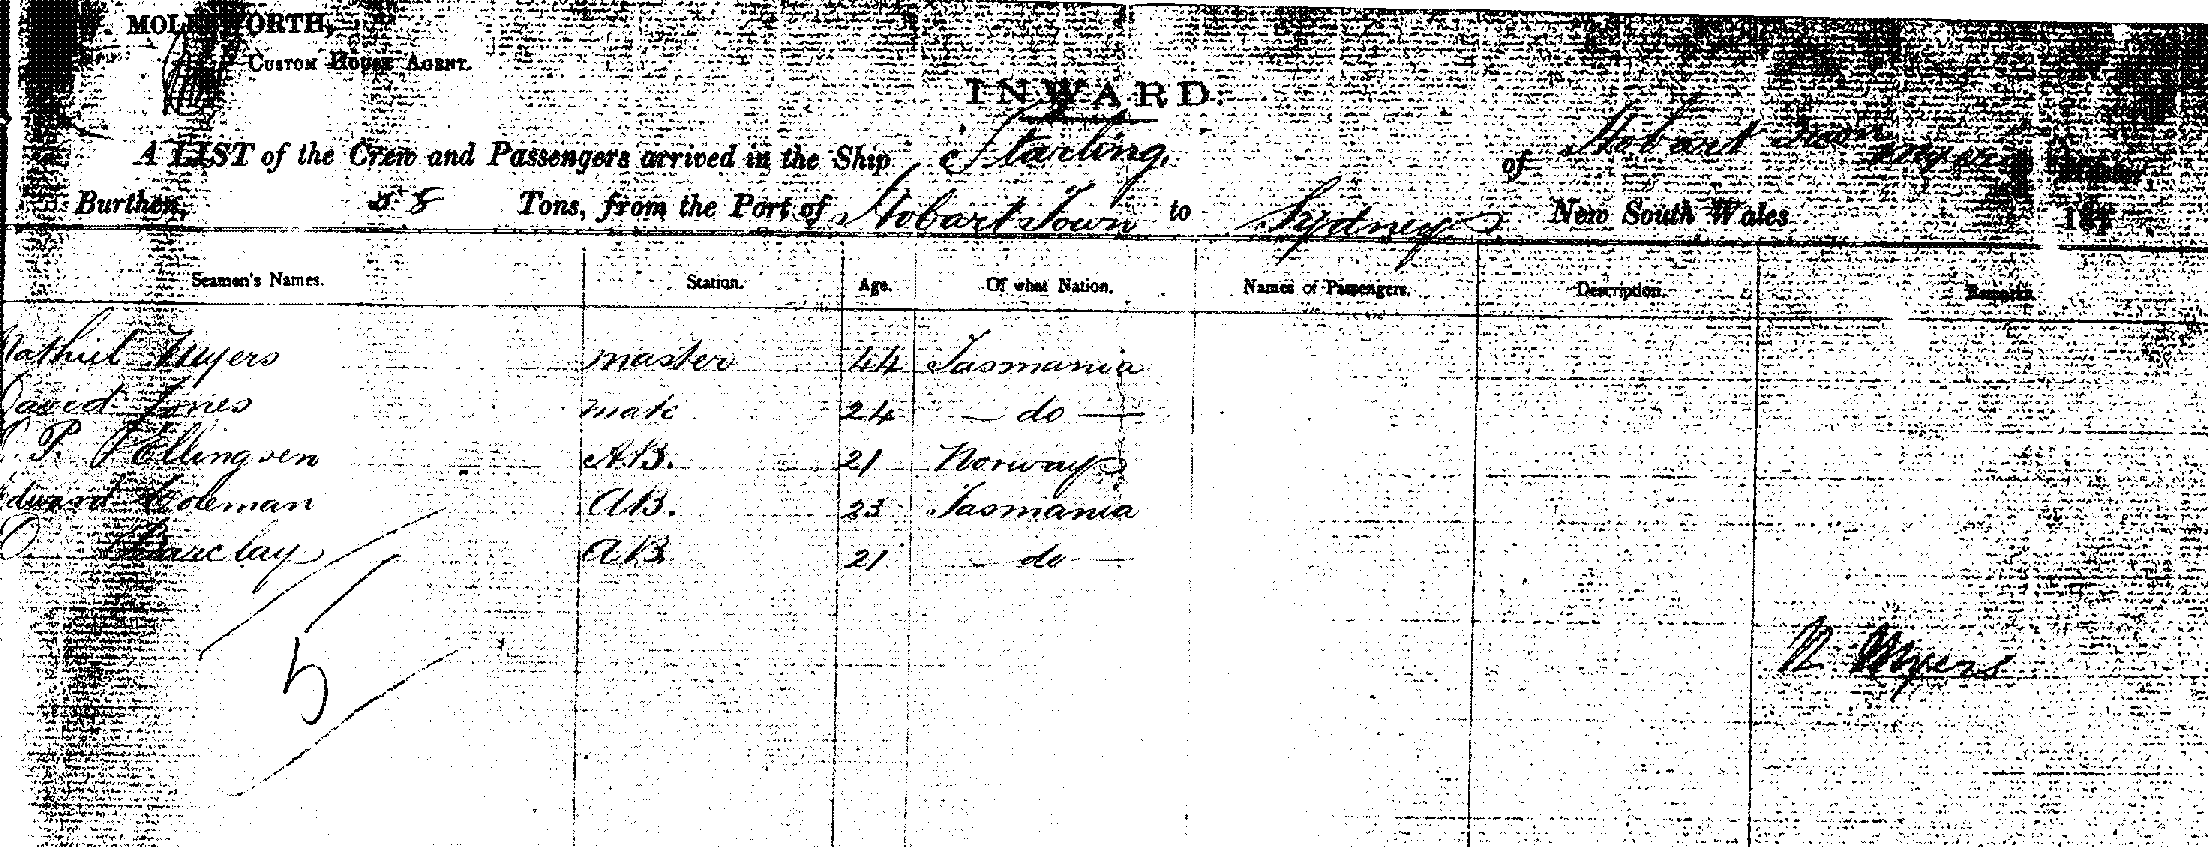 MOLESWORTH,
CUSTOM HOUSE AGENT.
INWARD.
A LIST of the Crew and Passengers arrived in the Ship Starling, of Hobart Town Myers Master,
Burthen, 58 Tons, from the Port of Hobart Town to Sydney New South Wales 187
Seamen's Names. Station. Age. Of what Nation. Names of Passengers. Description. Remarks
Nathiel Myers master 44 Tasmania
David Jones mate 24 — do —
P. Ellingsen A.B. 21 Norway
Edward Coleman AB. 23 Tasmania
O Barclay AB 21 — do —
5
N Myers